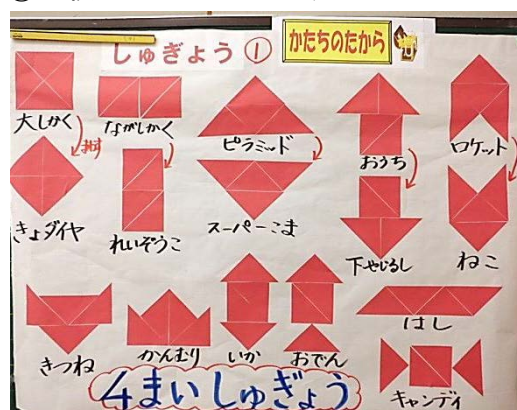 しゅぎょう①
かたちのたから
大しかく
ながしかく
ピラミッド
おうち
ロケット
きょダイヤ
れいぞうこ
スーパーこま
下やじるし
ねこ
きつね
かんむり
いか
おでん
はし
キャンディ
4まいしゅぎょう